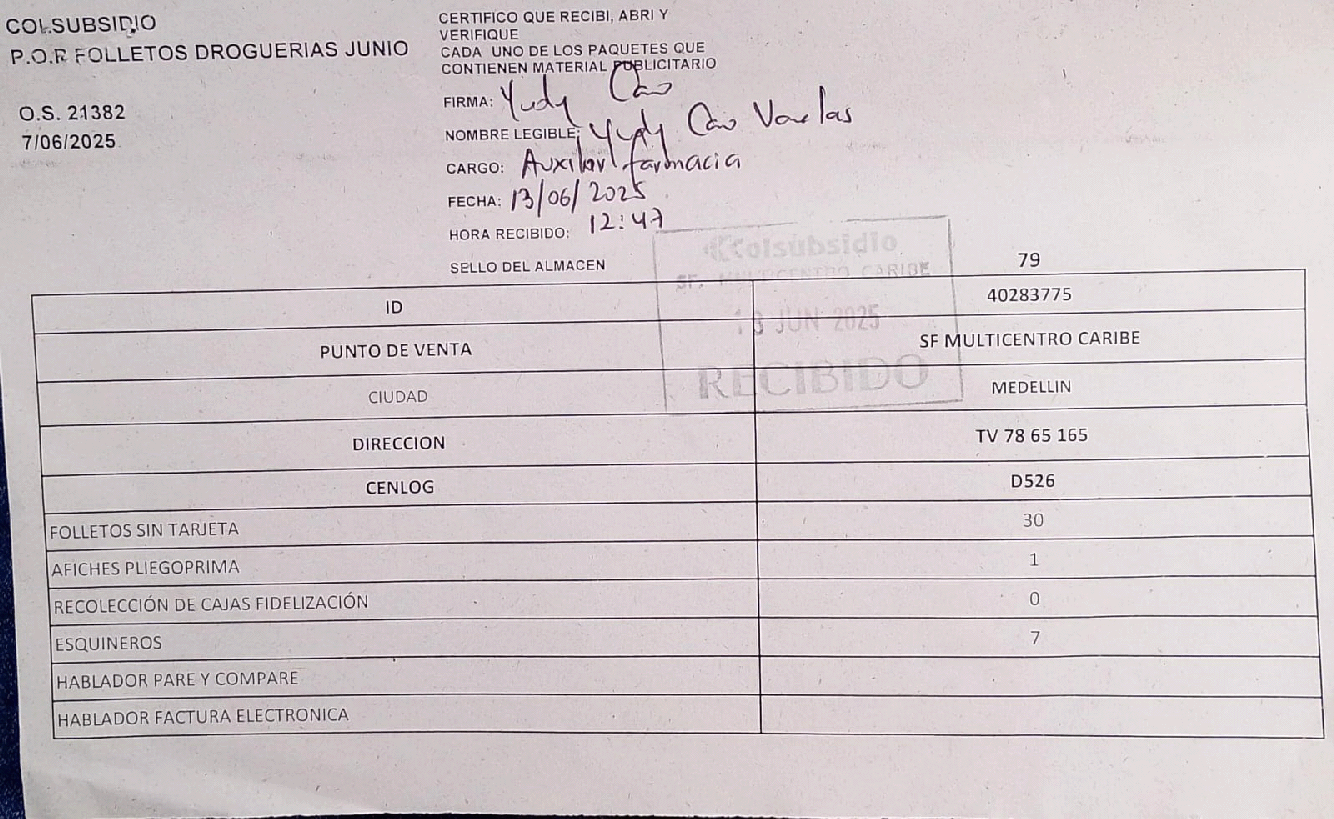 COLSUBSIDIO
P.O.R FOLLETOS DROGUERIAS JUNIO
O.S. 21382
7/06/2025
CERTIFICO QUE RECIBI, ABRI Y
VERIFIQUE
CADA UNO DE LOS PAQUETES QUE
CONTIENEN MATERIAL PUBLICITARIO
FIRMA: Yudy
NOMBRE LEGIBLE: Yudy
CARGO: Auxiliar farmacia
FECHA: 13/06/2025
HORA RECIBIDO: 12:47
SELLO DEL ALMACEN
Colsubsidio
SF. MULTICENTRO CARIBE
13 JUN 2025
RECIBIDO
79
ID 40283775
PUNTO DE VENTA SF MULTICENTRO CARIBE
CIUDAD MEDELLIN
DIRECCION TV 78 65 165
CENLOG D526
FOLLETOS SIN TARJETA 30
AFICHES PLIEGOPRIMA 1
RECOLECCIÓN DE CAJAS FIDELIZACIÓN 0
ESQUINEROS 7
HABLADOR PARE Y COMPARE
HABLADOR FACTURA ELECTRONICA